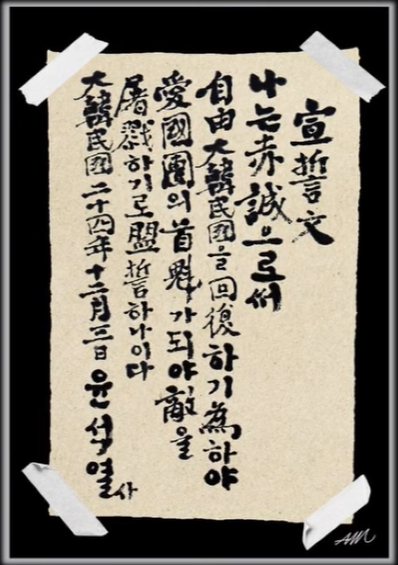 宣誓文
나는赤誠으로써
自由大韓民國을回復하기爲하야
愛國團의首魁가되야敵을
屠戮하기로盟誓하나이다
大韓民國二十四年十二月三日 윤석열
사